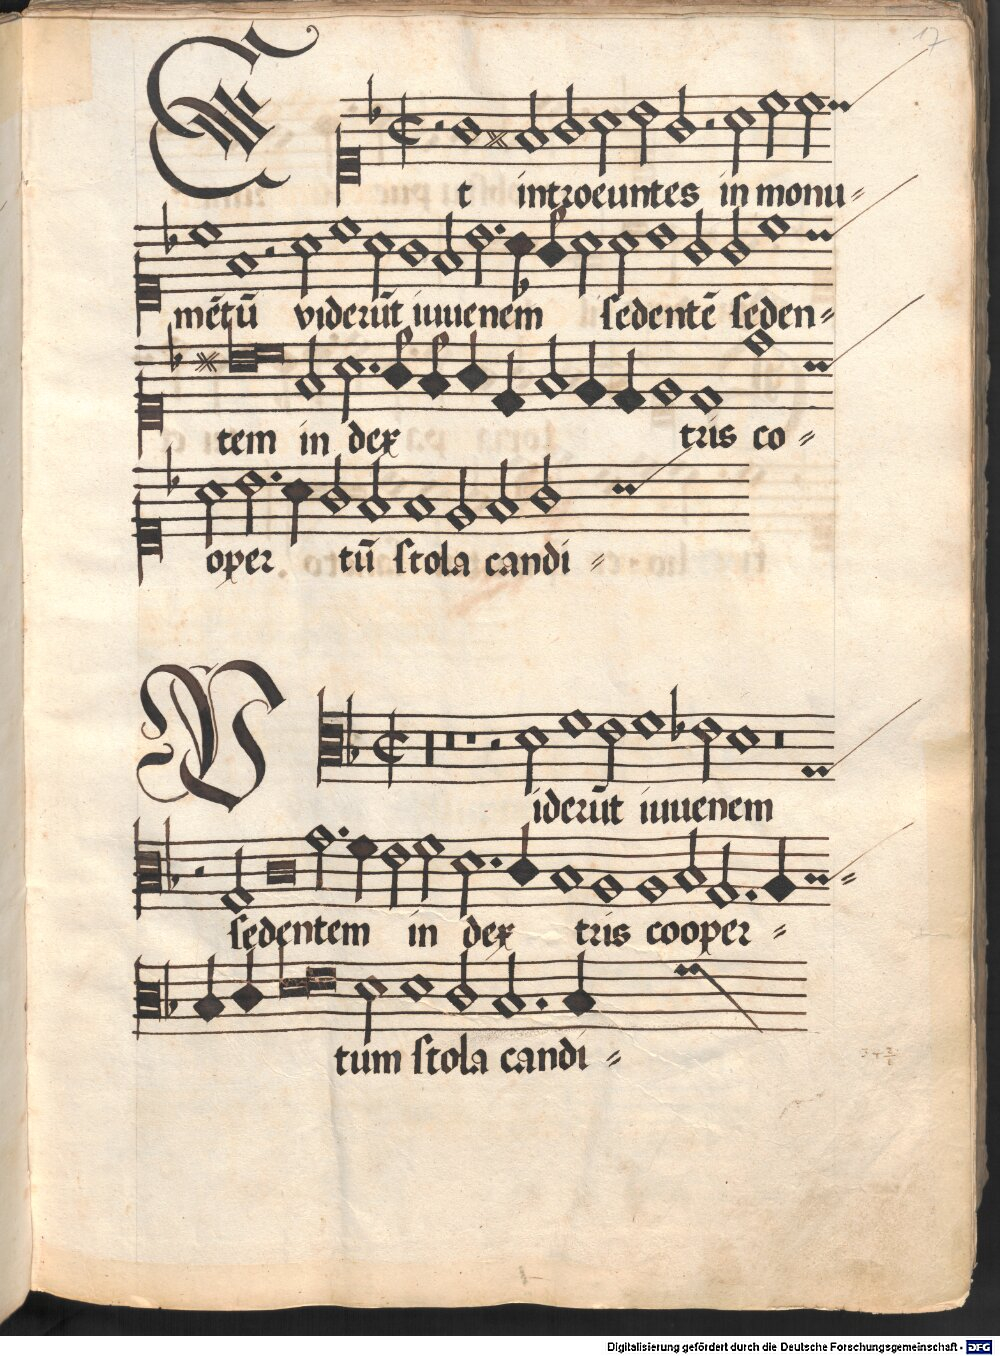 17
Et introeuntes in monu=
mētū viderūt iuuenem sedentē seden=
tem in dex tris co=
oper tū stola candi =
Viderūt iuuenem
sedentem in dex tris cooper =
tum stola candi =
Digitalisierung gefördert durch die Deutsche Forschungsgemeinschaft - DFG